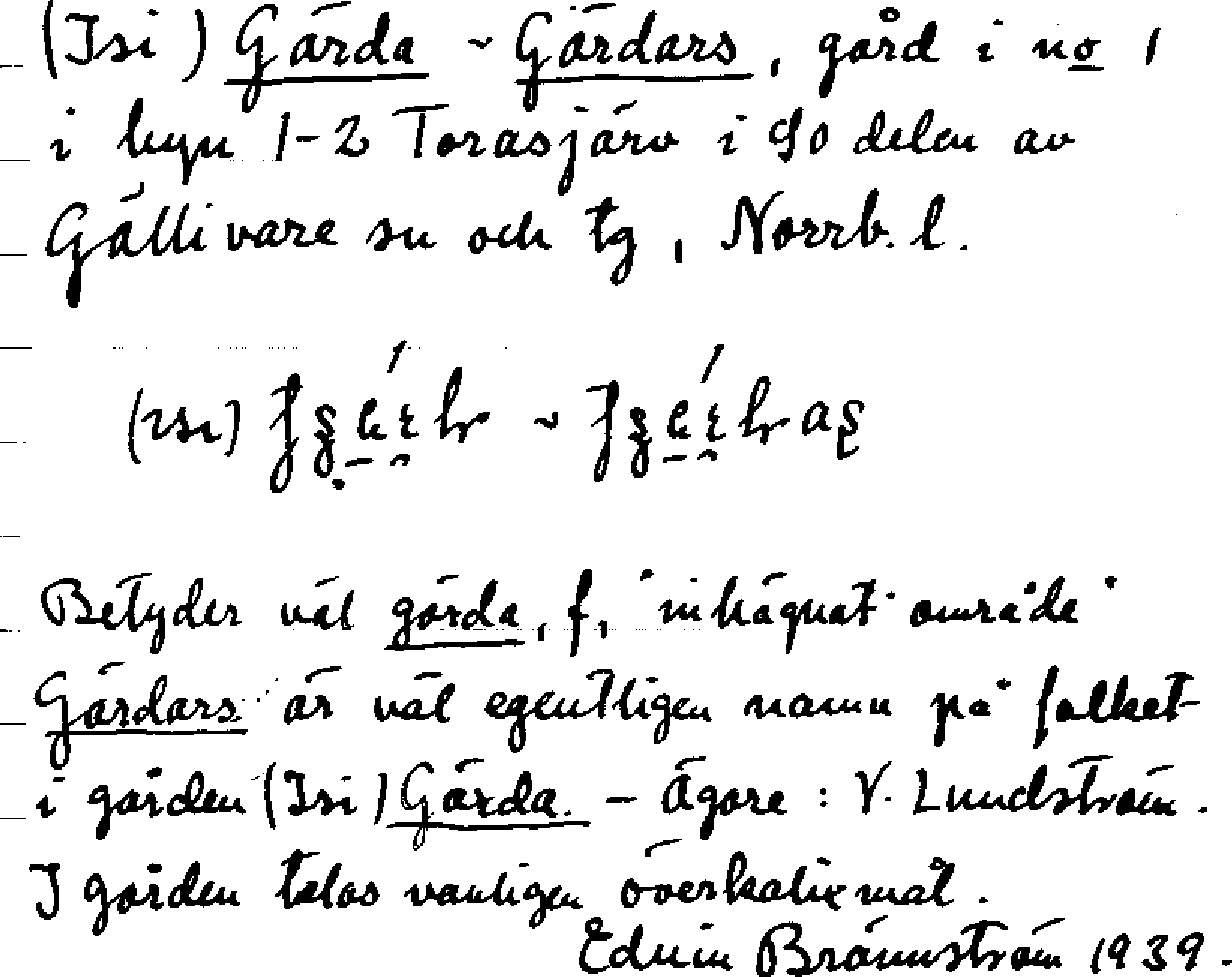 (Isi) Gärda ~ Gärdars, gård i no 1
i byn 1-2 Torasjärv i SO delen av
Gällivare sn och tg, Norrb. l.
Betyder väl gärda, f, "inhägnat område"
Gärdars är väl egentligen namn på folket
i gården (Isi) Gärda. – Ägare: V. Lundström.
I gården talas vanligen överkalixmål.
Edvin Brännström 1939.